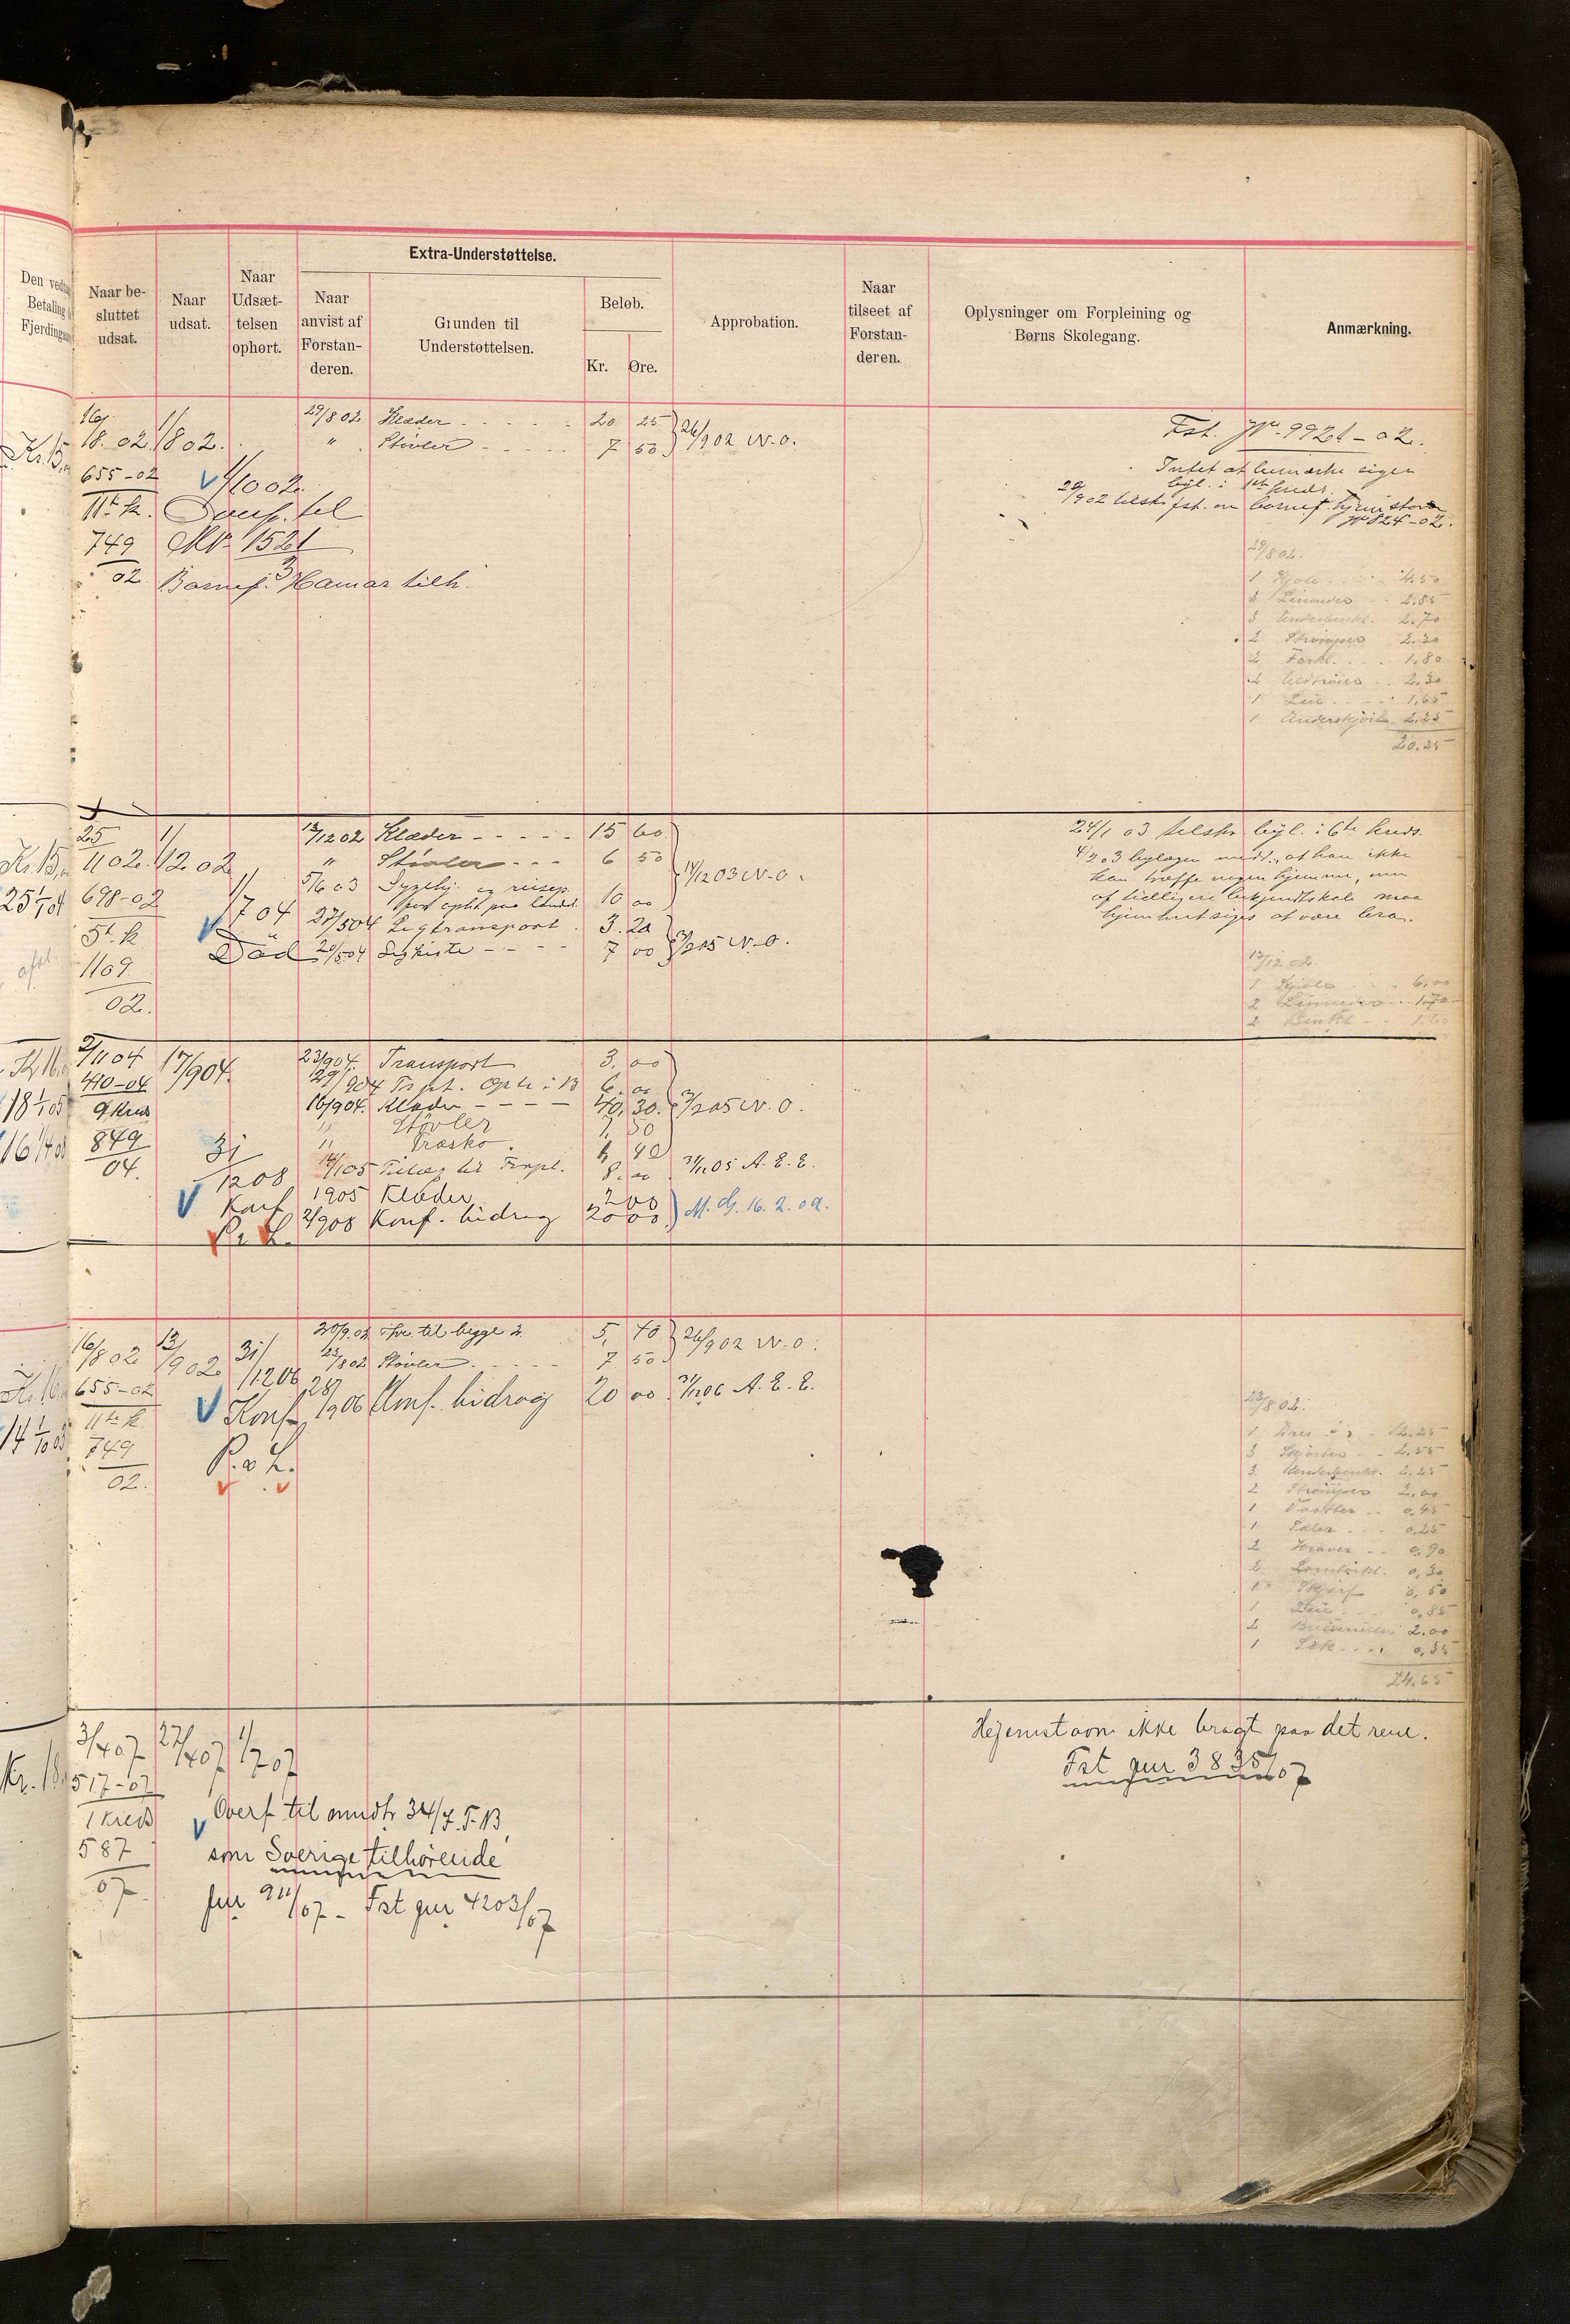 Extra-Understøttelse.
Den vedtag
Betaling
Fjerdingaar
Naar be-
sluttet
udsat.
Naar
udsat.
Naar
Udsæt-
telsen
ophørt.
Naar
anvist af
Forstan-
deren.
Grunden til
Understøttelsen.
Beløb.
Kr. Øre.
Approbation.
Naar
tilseet af
Forstan-
deren.
Oplysninger om Forpleining og
Børns Skolegang.
Anmærkning.
Kr. 15,
16/8. 02. 1/8 02. 29/8 02 Klæder 20 25 26/9 02 N.O.
" Støvler 7 50
655-02 1/10 02.
11te k. Overf. til
749 No. 1521
02. Barnef. Hamar tilh.
Fst. No. 9921-02.
Intet at bemærke siger
tilst. fst. om barnets hjemstavn
No 824-02.
29/8 02.
1 Kjole 4.50
3 Linneder 2.85
3 Underbenkl. 2.70
2 Strømper 2.20
2 Forkl. 1,80
2 Uldtrøier 2.30
1 Lue 1,65
1 Underskjørt 2.25
20.25
Kr. 15,
25 1/1 04
25/11 02. 1/12 02 12/12 02 Klæder 15 60
" Støvler 6 50 14/12 03 N.O.
698-02 1/7 04 5/6 03 Sygehj. og reisep.
10 00
5te k Død 27/5 04 Ligtransport 3. 20 3/2 05 N.O.
20/5 04 Ligkiste 7 00
1109
02.
24/1 03 tilskr. tilsyl. i 6te kreds.
4/2 03 bylægen medd. at han ikke
kan træffe nogen hjemme, men
af tidligere bekjendtskab maa
hjemmet siges at være bra.
12/12 02.
1 Kjole 6,00
2 Linneder 1.70
2 Benkl. 1.60
Kr 16,
18 1/1 05
16 1/4 08
2/11 04 17/9 04. 23/9 04. Transport 3. 00
410-04 29/9 04 Trspt. Oph i B 6. 00
9 Kreds 16/9 04. Klæder 40. 30. 3/2 05 N.O.
849 " Støvler 7, 50
04. " Træsko 1, 40
31/12 08 14/1 05 Tillæg til Forpl. 8. 00 31/12 05 A.E.E.
Konf 1905 Klæder 2 00
P. & L. 2/9 08 Konf. bidrag 20 00 M.G. 16.2.09.
Kr. 16
14 1/10 03
16/8 02 13/9 02 31/12 06 20/9.02 Tøi til begge 2. 5, 40 26/9 02 N.O.
23/8 02 Støvler 7 50
655-02 Konf 28/9 06 Konf. bidrag 20 00 31/12 06 A.E.E.
11te k.
749 P. & L.
02.
23/8 02.
1 Dres 12.25
3 Skjorter 2.55
3 Underbenkl. 2.25
2 Strømper 2,00
1 Vaatter 0,45
1 Seler 0,25
2 Kraver 0,90
2 Lomtørkl. 0,30
1 Skjerf 0,50
1 Lue 0,85
2 2.00
1 Sæk 0,35
24.65
Kr. 18.
3/4 07 27/4 07 1/7 07
517-07
1 Kreds Overf til mndtr 34/7. F.B,
587 som Sverige tilhørende
07 Jur 911/07 - Fst jur 4203/07
Hjemstavn ikke bragt paa det rene.
Fst jur 3835/07